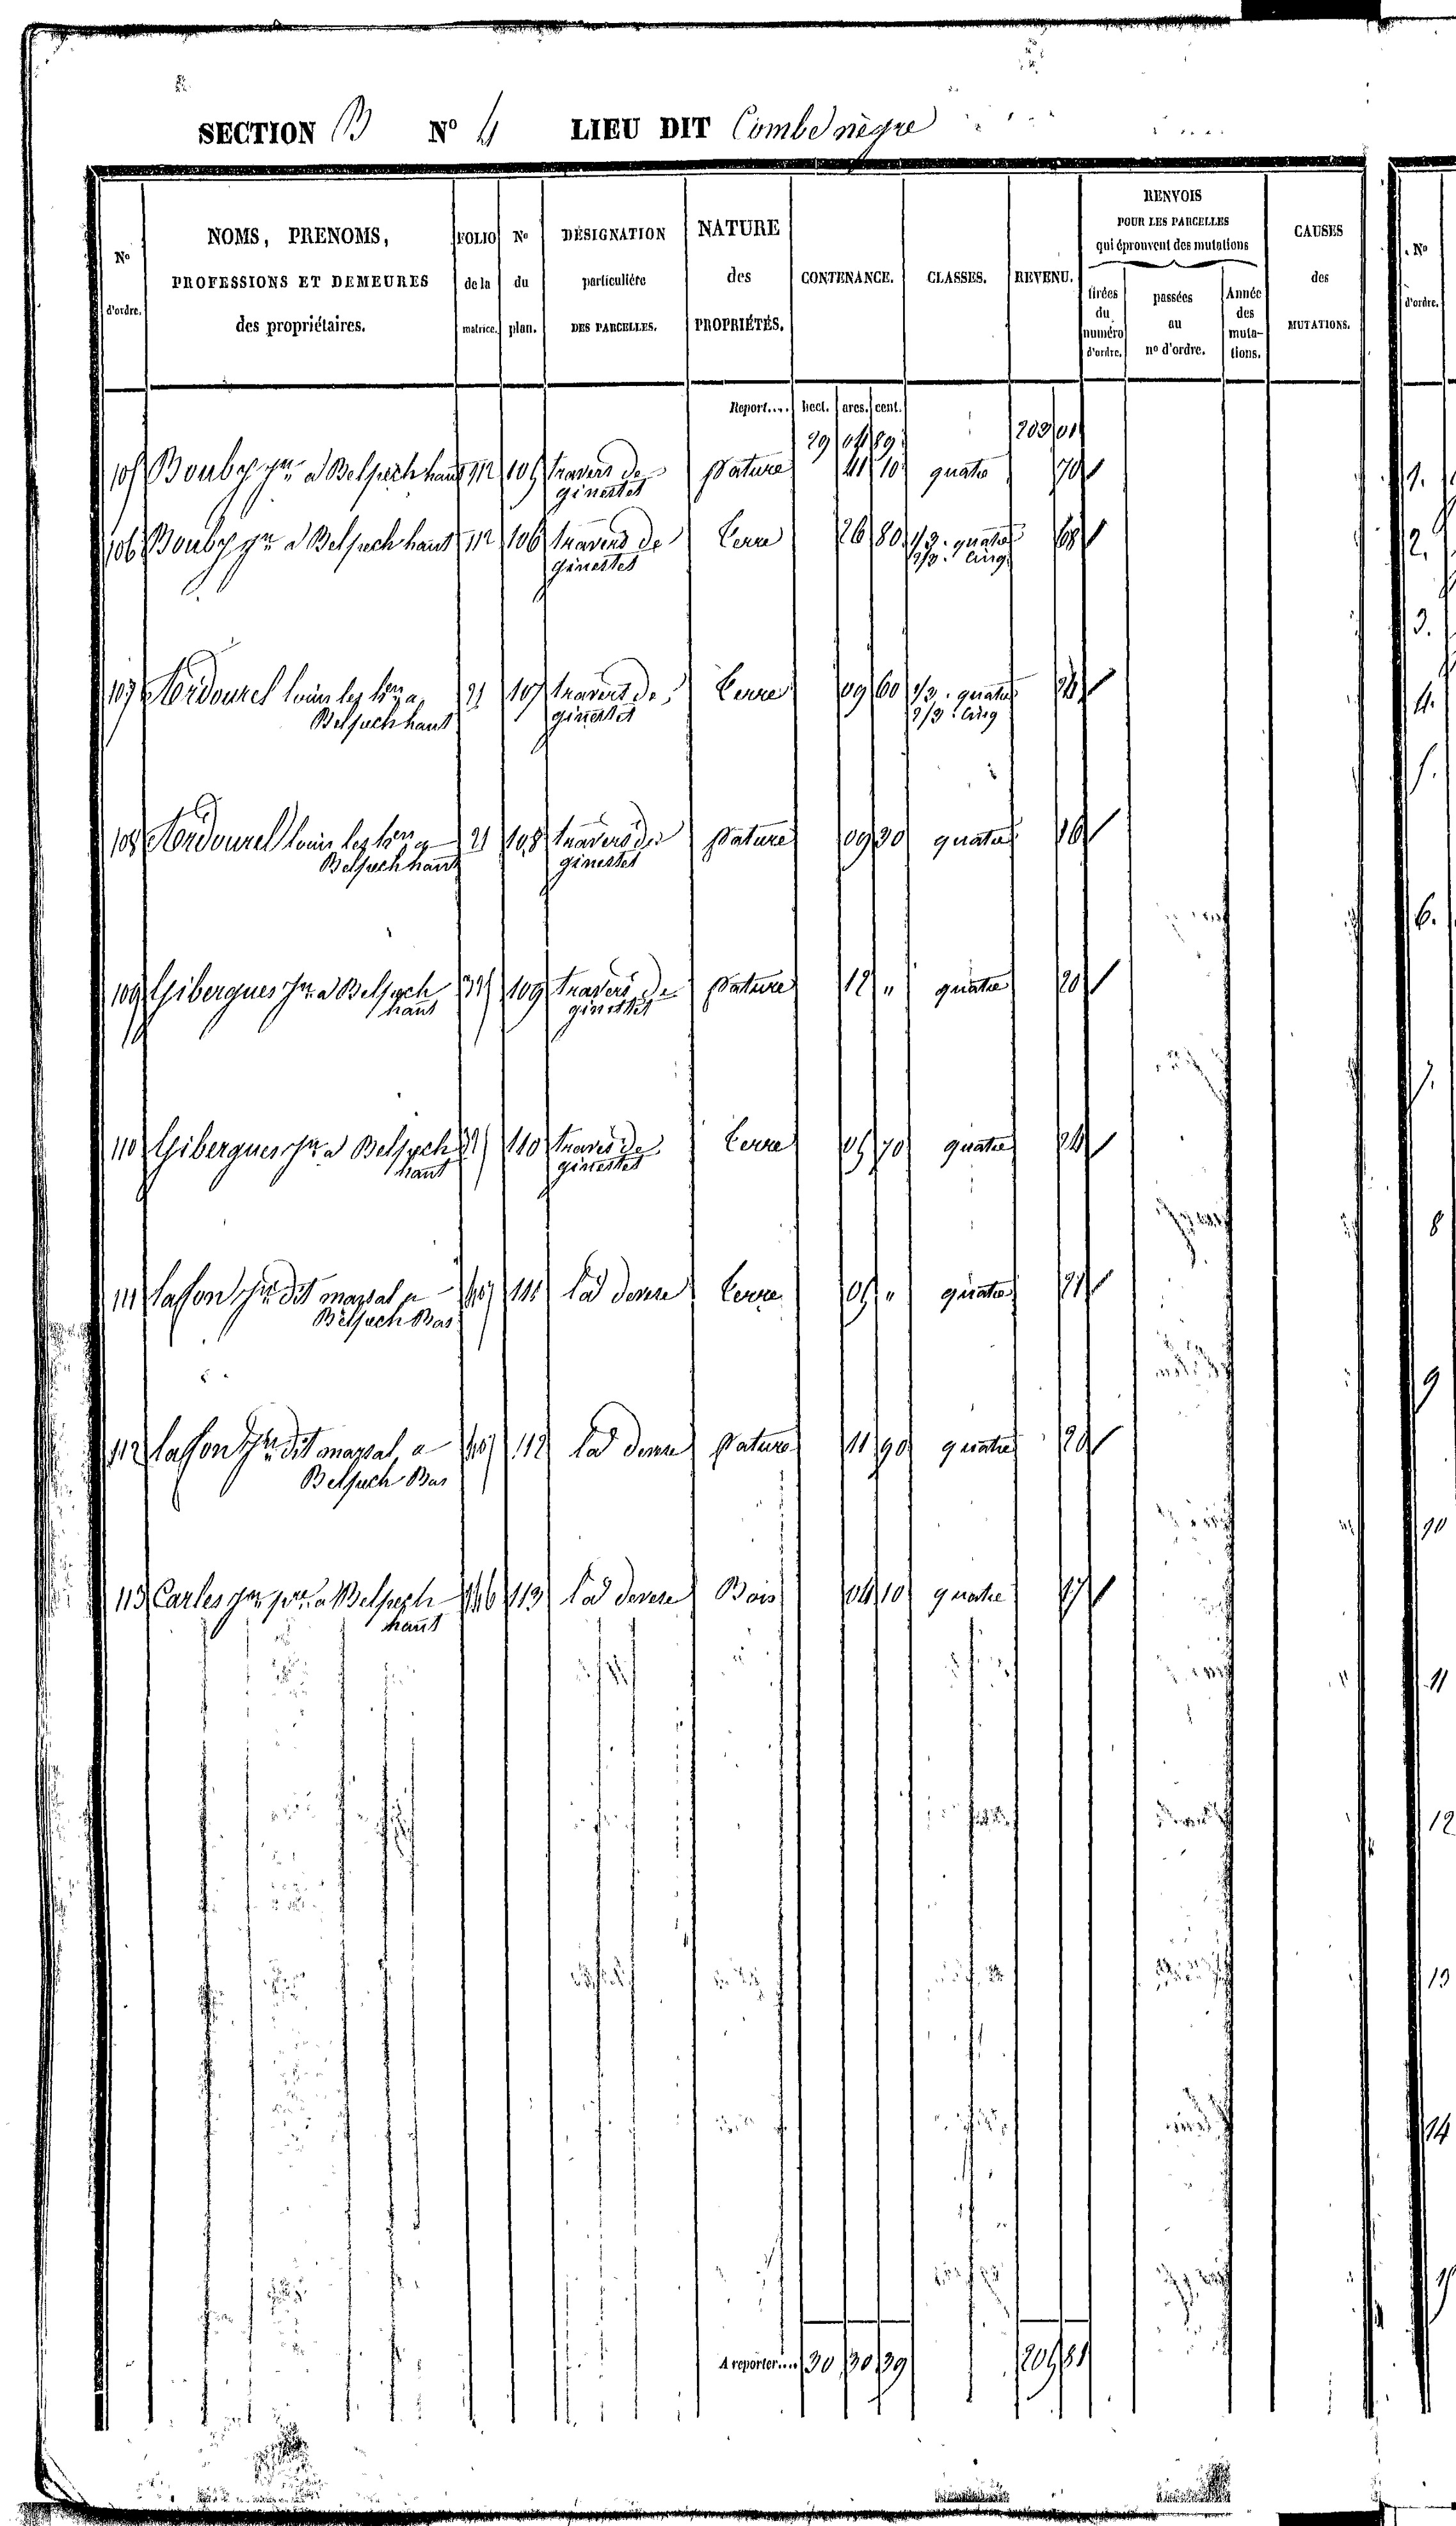 SECTION B N° 4 LIEU DIT Combe nègre
N° d'ordre.
NOMS, PRENOMS, PROFESSIONS ET DEMEURES des propriétaires.
FOLIO de la matrice.
N° du plan.
DÉSIGNATION particulière DES PARCELLES.
NATURE des PROPRIÉTÉS.
CONTENANCE.
CLASSES.
REVENU.
RENVOIS POUR LES PARCELLES qui éprouvent des mutations
tirées du numéro d'ordre.
passées au n° d'ordre.
Année des muta-tions.
CAUSES des MUTATIONS.
N° d'ordre.
Report.... hect. ares. cent.
29 04 89 203 01
105 Bouby jn a Belpech haut 112 105 travers de pature 41 10 quatre 70
ginestet
106 Bouby jn a Belpech haut 112 106 travers de terre 26 80 1/3. quatre 68
ginestet 2/3. cinq
107 Ardourel louis les a 21 107 travers de terre 09 60 1/3. quatre 24
Belpech haut ginestet 2/3. cinq
108 Ardourel louis les a 21 108 travers de pature 09 30 quatre 16
Belpech haut ginestet
109 Gibergues jn a Belpech 109 travers de pature 12 " quatre 20
haut ginestet
110 Gibergues jn a Belpech 110 travers de terre 05 70 quatre 24
haut ginestet
111 lafon jn dit marsal a 111 la devese terre 05 " quatre 21
Belpech Bas
112 lafon jn dit marsal a 112 la devese pature 11 90 quatre 20
Belpech Bas
113 Carles jn a Belpech 146 113 la devese Bois 04 10 quatre 17
haut
A reporter.... 30 30 39 205 81
1.
2.
3.
4.
5.
6.
7.
8
9
10
11
12
13
14
15